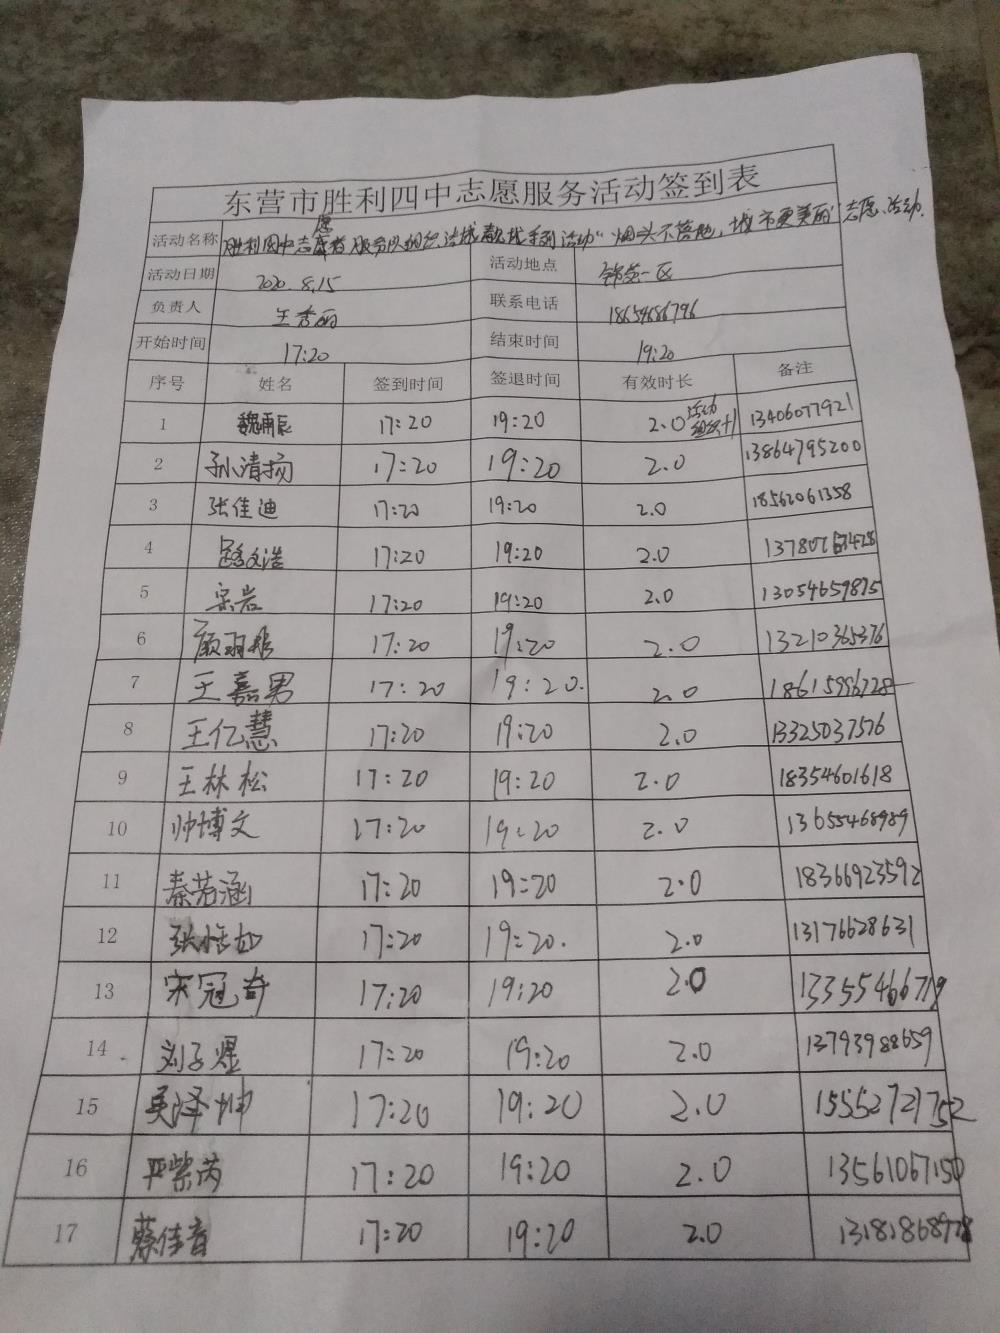 东营市胜利四中志愿服务活动签到表
活动名称 胜利四中志愿者服务队组织 活动"烟头不落地，城市更美丽"志愿活动.
活动日期 2020.8.15 活动地点 锦苑一区
负责人 王秀丽 联系电话 18654686796
开始时间 17:20 结束时间 19:20
序号 姓名 签到时间 签退时间 有效时长 备注
1 魏雨辰 17:20 19:20 2.0 活动组织+1 13406077921
2 孙清扬 17:20 19:20 2.0 13864795200
3 张佳迪 17:20 19:20 2.0 18562061358
4 路文浩 17:20 19:20 2.0
5 宗岩 17:20 19:20 2.0 13054659875
6 顾羽彤 17:20 19:20 2.0 13210365376
7 王嘉男 17:20 19:20. 2.0 18615996728
8 王亿慧 17:20 19:20 2.0 13325037576
9 王林松 17:20 19:20 2.0 18354601618
10 帅博文 17:20 19:20 2.0 13655468989
11 秦若涵 17:20 19:20 2.0 18366923592
12 张恬如 17:20 19:20. 2.0 13176628631
13 宋冠奇 17:20 19:20 2.0 13355466719
14 刘子煜 17:20 19:20 2.0 13793988659
15 吴泽坤 17:20 19:20 2.0 15552721752
16 严紫芮 17:20 19:20 2.0 13561067150
17 蔡佳音 17:20 19:20 2.0